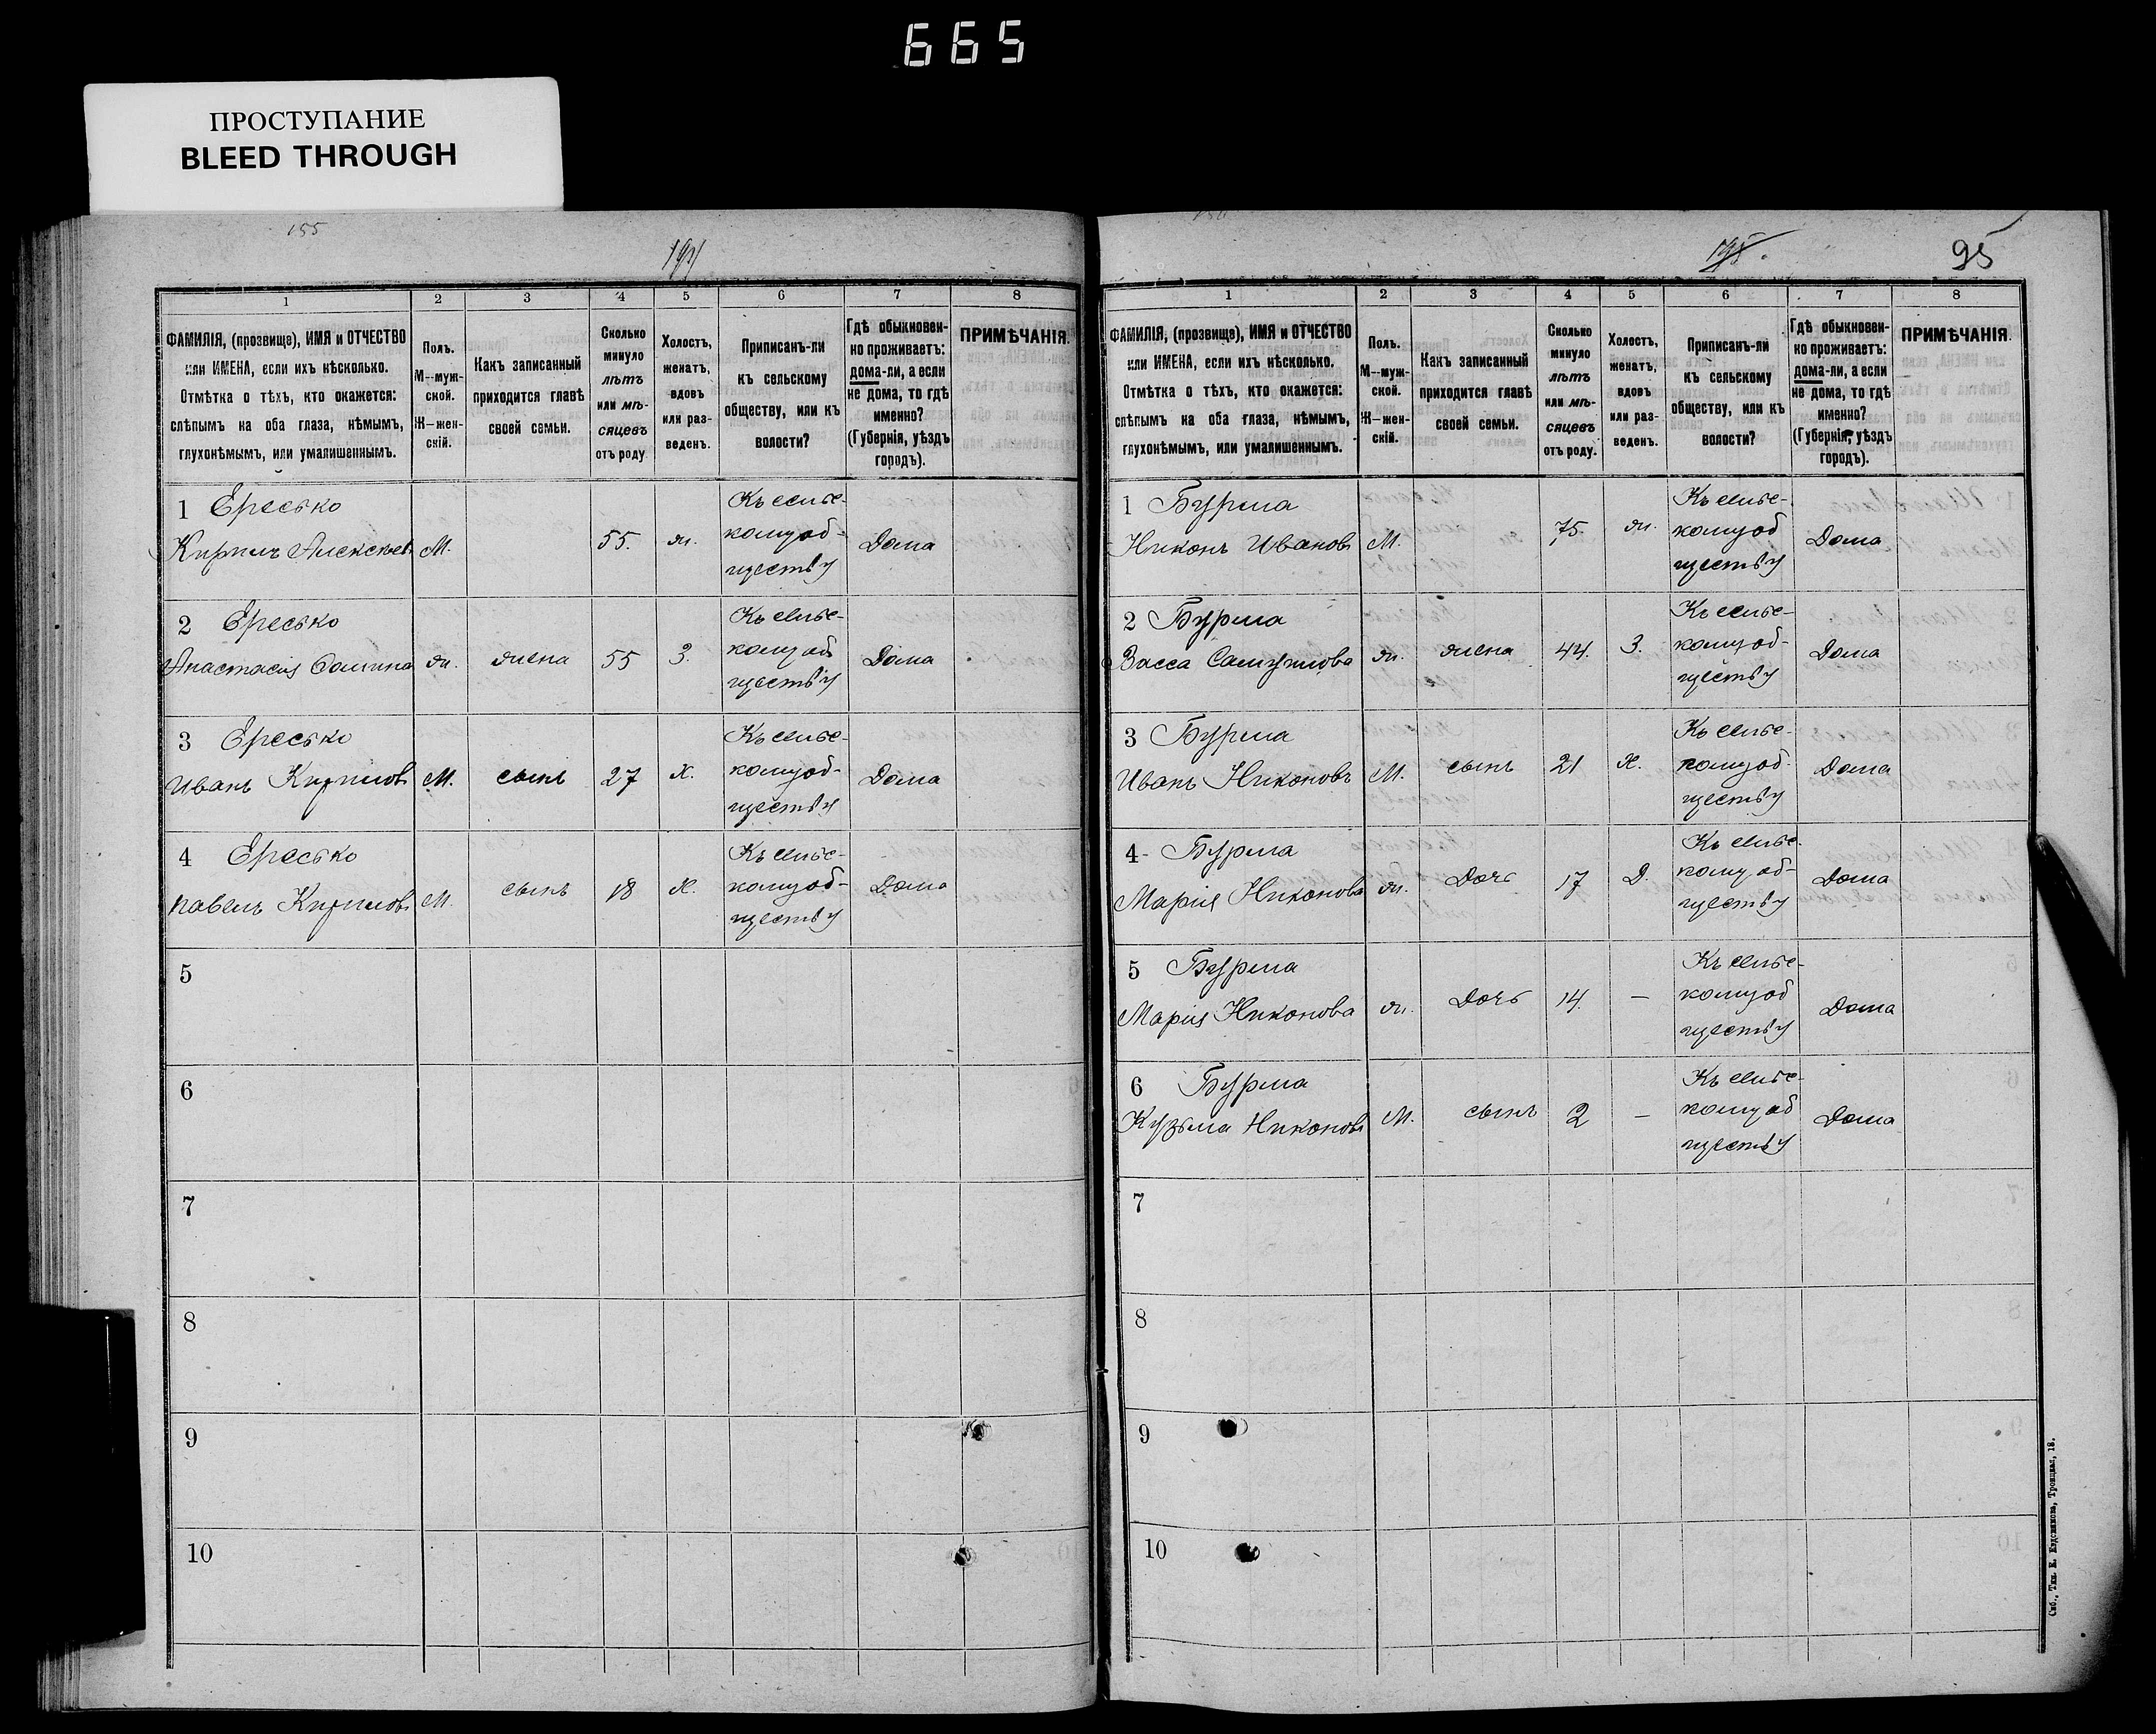 665
ПРОСТУПАНИЕ
BLEED THROUGH
155
194
1 2 3 4 5 6 7 8
ФАМИЛІЯ, (прозвище), ИМЯ и ОТЧЕСТВО
или ИМЕНА, если ихъ нѣсколько.
Отмѣтка о тѣхъ, кто окажется:
слѣпымъ на оба глаза, нѣмымъ,
глухонѣмымъ, или умалишеннымъ.
Полъ.
М—муж-
ской.
Ж—жен-
скій.
Какъ записанный
приходится главѣ
своей семьи.
Сколько
минуло
лѣтъ
или мѣ-
сяцевъ
отъ роду.
Холостъ,
женатъ,
вдовъ
или раз-
веденъ.
Приписанъ-ли
къ сельскому
обществу, или къ
волости?
Гдѣ обыкновен-
но проживаетъ:
дома-ли, а если
не дома, то гдѣ
именно?
(Губернія, уѣздъ
городъ).
ПРИМѢЧАНІЯ.
1 Ересько Къ сельс-
Кирилъ Алексѣевъ М. 55. ж. кому об- Дома
ществу
2 Ересько Къ сельс-
Анастасія Фомина ж. жена 55 З. кому об Дома
ществу
3 Ересько Къ сельс-
Иванъ Кириловъ М. сынъ 27 Х. кому об- Дома
ществу
4 Ересько Къ сельс-
Павелъ Кириловъ М. сынъ 18 Х. кому об- Дома
ществу
5
6
7
8
9
10
195.
95
1 2 3 4 5 6 7 8
ФАМИЛІЯ, (прозвище), ИМЯ и ОТЧЕСТВО
или ИМЕНА, если ихъ нѣсколько.
Отмѣтка о тѣхъ, кто окажется:
слѣпымъ на оба глаза, нѣмымъ,
глухонѣмымъ, или умалишеннымъ.
Полъ.
М—муж-
ской.
Ж—жен-
скій.
Какъ записанный
приходится главѣ
своей семьи.
Сколько
минуло
лѣтъ
или мѣ-
сяцевъ
отъ роду.
Холостъ,
женатъ,
вдовъ
или раз-
веденъ.
Приписанъ-ли
къ сельскому
обществу, или къ
волости?
Гдѣ обыкновен-
но проживаетъ:
дома-ли, а если
не дома, то гдѣ
именно?
(Губернія, уѣздъ
городъ).
ПРИМѢЧАНІЯ.
1 Бурма Къ сельс-
Никонъ Ивановъ М. 75. ж. кому об Дома
ществу
2 Бурма Къ сельс-
Васса Самуилова ж. жена 44. З. кому об- Дома
ществу
3 Бурма Къ сельс-
Иванъ Никоновъ М. сынъ 21 Х. кому об- Дома
ществу
4 Бурма Къ сельс-
Марія Никонова ж. Дочь 17 Д. кому об- Дома
ществу
5 Бурма Къ сельс-
Марія Никонова ж. Дочь 14. — кому об Дома
ществу
6 Бурма Къ сельс-
Кузьма Никоновъ М. сынъ 2 — кому об Дома
ществу
7
8
9
10